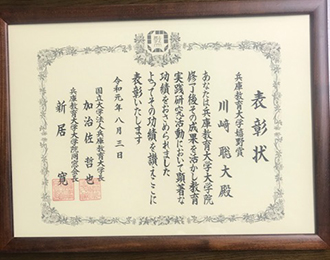 表彰状
兵庫教育大学嬉野賞
川﨑 聡大 殿
あなたは兵庫教育大学大学院
修了後その成果を活かし教育
実践研究活動において顕著な
功績をおさめられました
よってその功績を讃えここに
表彰いたします
令和元年八月三日
国立大学法人兵庫教育大学長
加治佐 哲也
兵庫教育大学大学院同窓会長
新居 寛